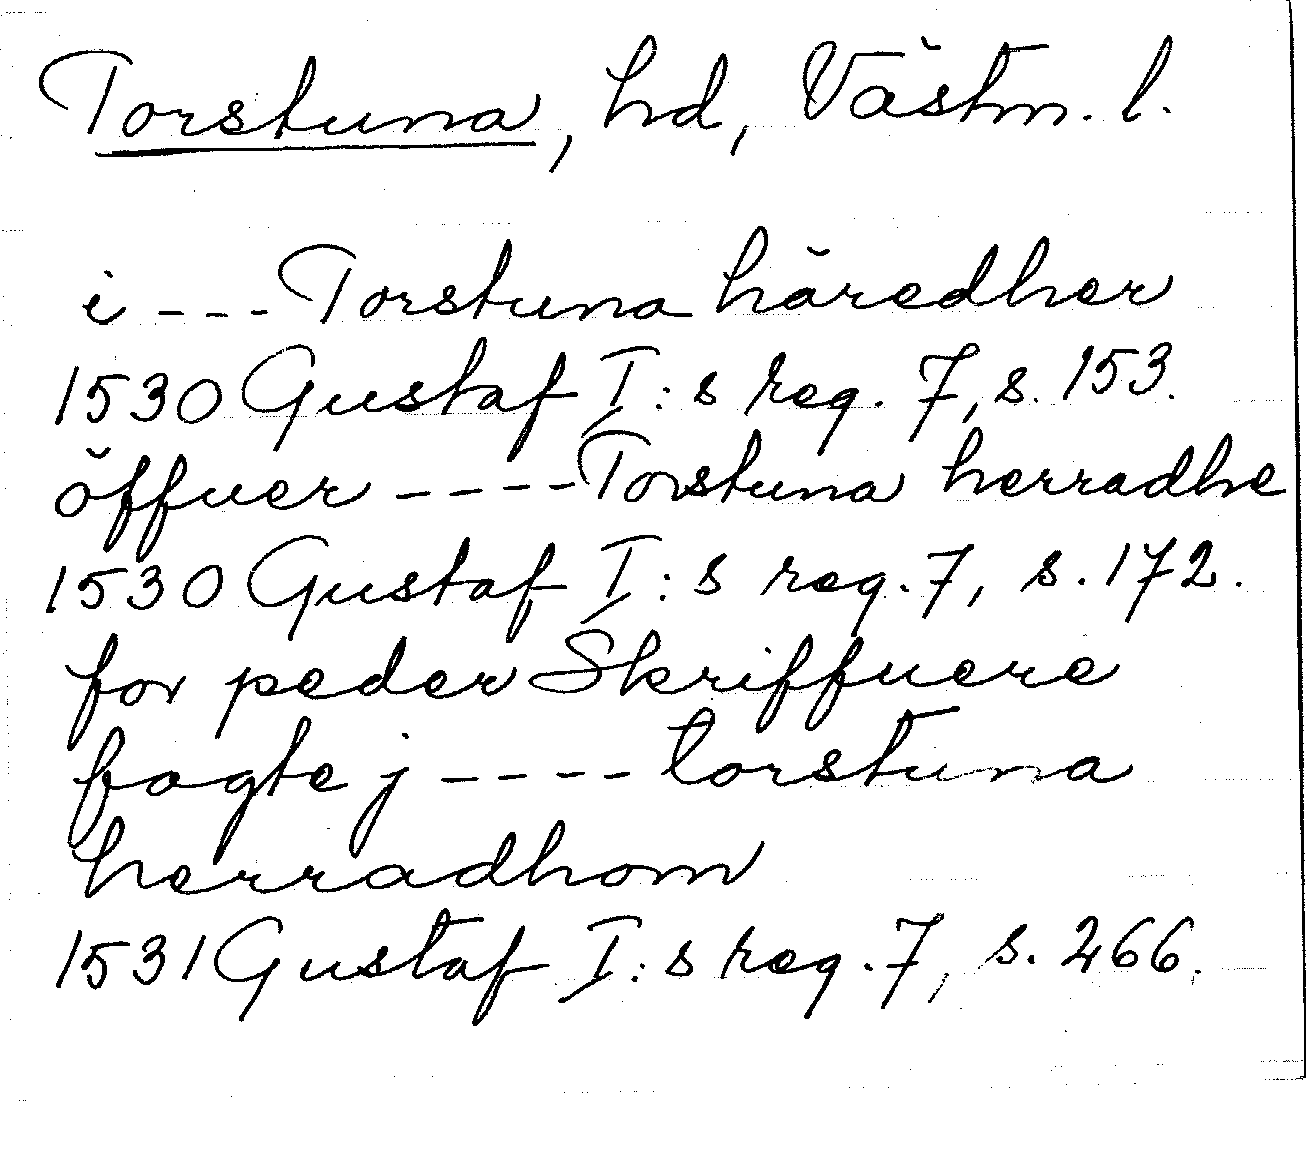 Torstuna, hd, Västm. l.
i --- Torstuna häredher
1530 Gustaf I:s reg. 7, s. 153.
öffuer ---- Torstuna herradhe
1530 Gustaf I:s reg. 7, s. 172.
for peder Skriffuere
fogte j ---- torstuna
herradhom
1531 Gustaf I:s reg. 7, s. 266.